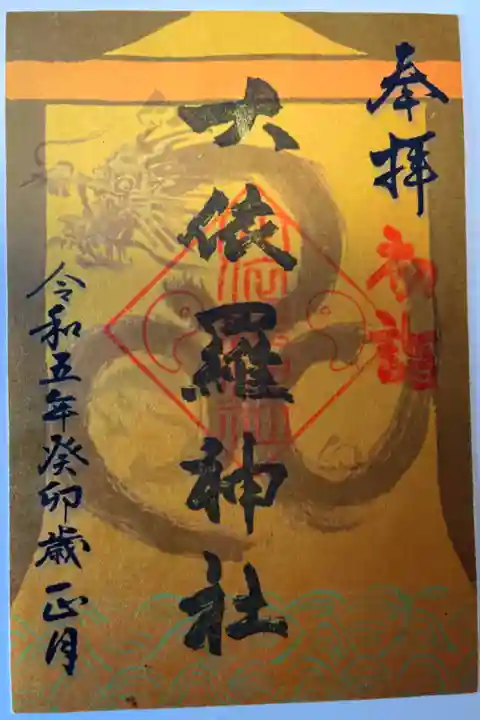 奉拝
初詣
大依羅神社
令和五年癸卯歳正月